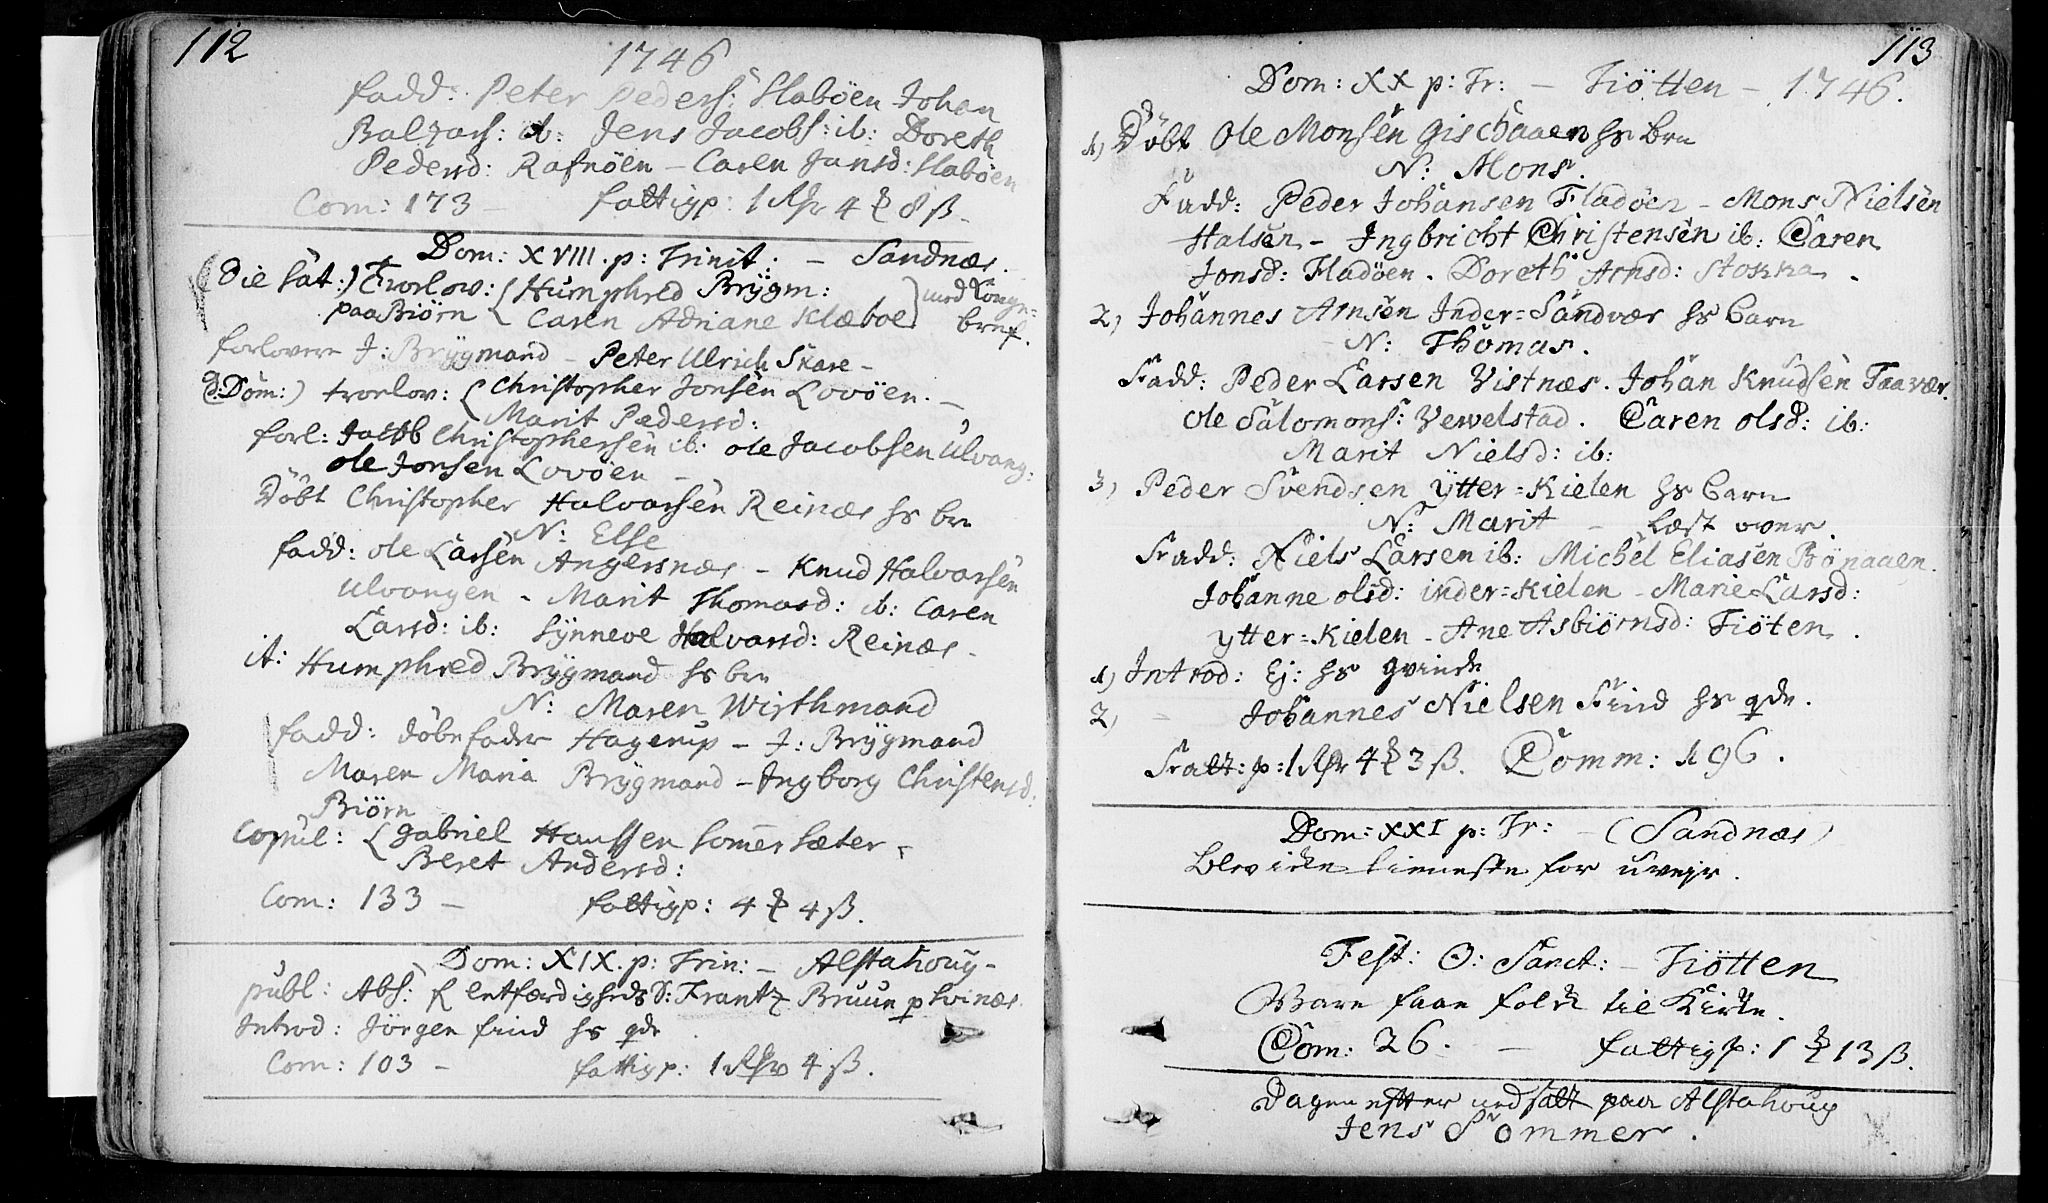 112
1746
fadd: Peter Peders: Slabøen Johan
Baltzars: ib: Jens Jacobs: ib: Doreth
Pedersd: Rafnøen – Caren Jansd: Slabøen
Com: 173 – fattigp: 1 Rdr 4 ℔ 8 ß –
Dom: XVIII. p: Trinit: – Sandnæs.
(die Sat:) Trorlov: { Humphred Brÿgm: } med Konge=
paa Biørn { Caren Adriane Klæboe } bref.
forlovere J: Brÿgmand – Peter Ulrich Skare –
d: Dom:) trorlov: { Christopher Jonsen Lovøen. –
Marit Pedersd:
forl: Jacob Christophersen ib: ole Jacobsen Ulvang:
ole Jonsen Lovøen –
Døbt Christopher Halvarsen Reinæs hs bn
N: Else
fadd: ole Larsen Angersnæs – Knud Halvarsen
Ulvangen – Marit Thomasd: ib: Caren
Larsd: ib: Synneve Halvarsd: Reinæs –
it: Humphred Brÿgmand hs bn
N: Maren Wirthmand
fadd: døbefader Hagerup – J: Brÿgmand
Maren Maria Brÿgmand – Ingborg Christensd:
Biørn
Copul: { Gabriel Hanssen Sommersæter
Beret Andersd:
Com: 133 – fattigp: 4 ℔ 4 ß.
Dom: XIX. p: Trin: – Alstahoug –
publ: Abs: f lentfærdigheds S: Frantz Bruun p Svinæs
Introd: Jørgen find hs qde
Com: 103 – fattigp: 1 Rdr 4 ß.
113
Dom: XX p: Tr: – Tiøtten – 1746.
1) Døbt Ole Monsen Gischaaen hs brn
N: Mons.
Fadd: Peder Johansen Fladøen – Mons Nielsen
Halsen – Ingbricht Christensen ib: Caren
Jonsd: Fladøen. Doreth Arnsd: Stokka.
2) Johannes Arnsen Inder=Sandvær hs barn
N: Thomas.
Fadd: Peder Larsen Vistnæs. Johan Knudsen Faavær.
Ole Salomons: Vewelstad. Caren olsd: ib:
Marit Nielsd: ib:
3) Peder Svendsen Ytter=Kielen hs barn
N: Marit – læst over
Fadd: Niels Larsen ib: Michel Eliasen Bønaaen.
Johanne olsd: inder=Kielen – Marie Larsd:
ytter=Kielen – Ane Asbiørnsd: Tiøten.
1) Introd: Ej: hs qvinde
2) – Johannes Nielsen Find hs qde.
Fatt: p: 1 Rdr 4 ℔ 3 ß. Comm: 196.
Dom: XXI p: Tr: – (Sandnæs)
Blev ikke tieneste for uvejr.
Fest: O: Sanct: – Tiøtten
Ware faae folk til Kirke.
Com: 26. – fattigp: 1 ℔ 13 ß.
Dagen efter nedsatt paa Alstahoug
Jens Sommer.